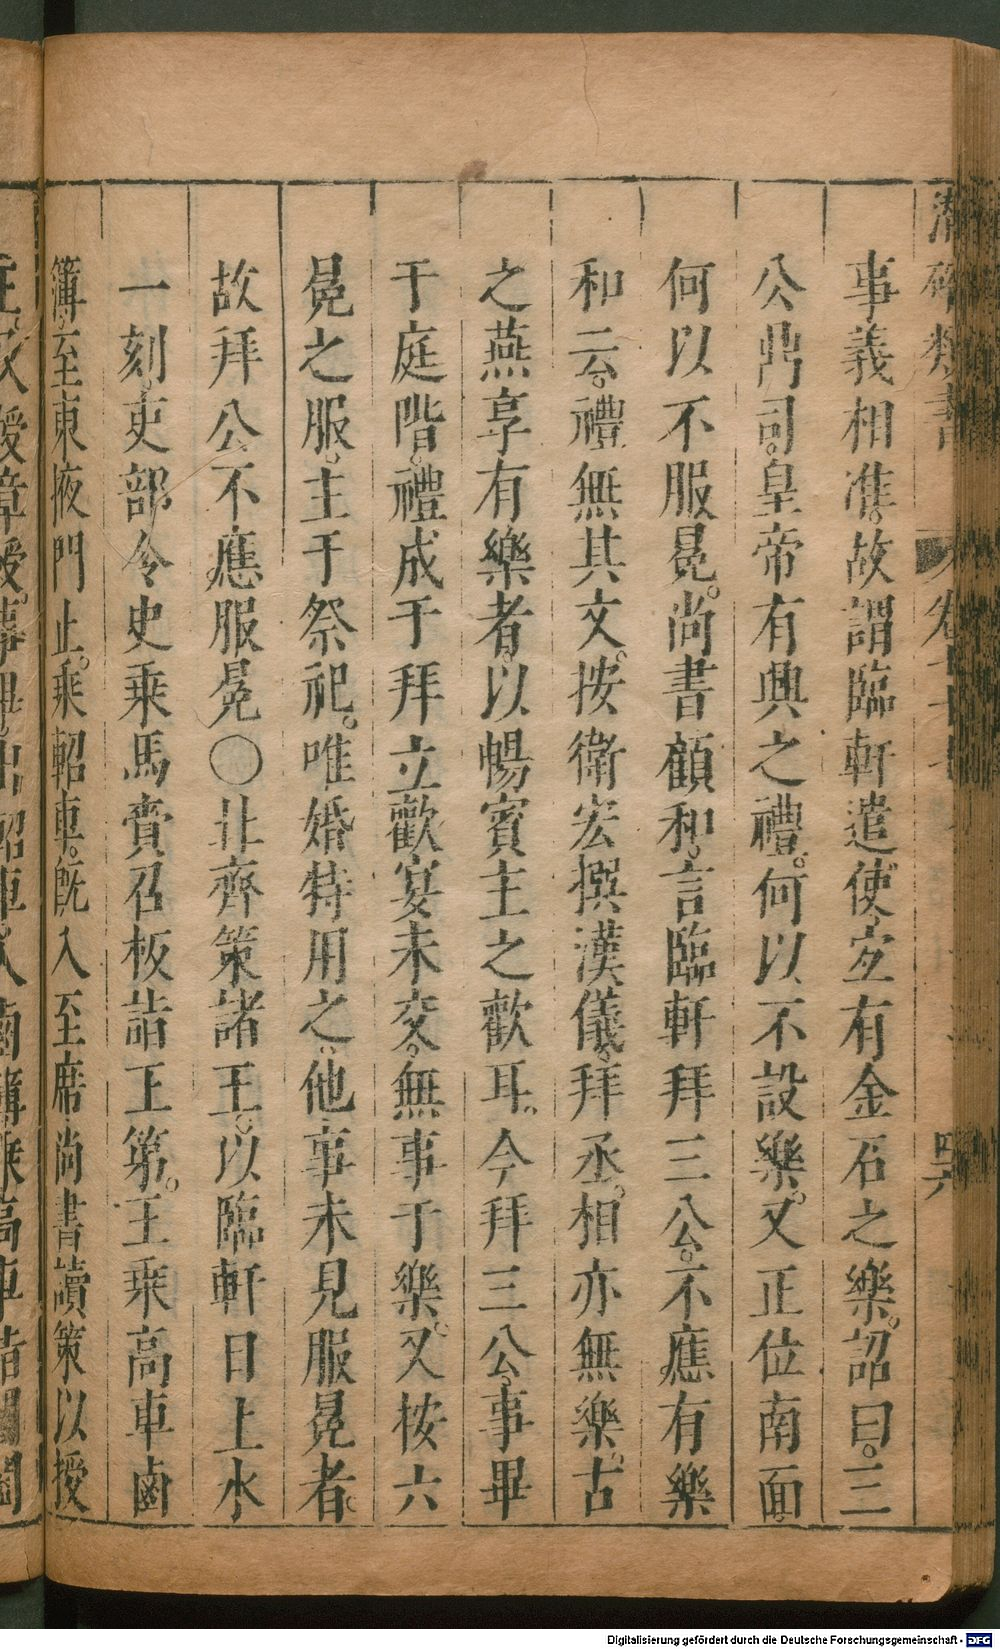 潛確類書 卷七十七 四六
事義相准。故謂臨軒遣使。宜有金石之樂。詔曰。三
公鼎司。皇帝有興之禮。何以不設樂。又正位南面。
何以不服冕。尚書顧和。言臨軒拜三公。不應有樂
和云。禮無其文。按衛宏撰漢儀。拜丞相亦無樂。古
之燕享有樂者。以暢賓主之歡耳。今拜三公。事畢
于庭階。禮成于拜立。歡宴未交。無事于樂。又按六
冕之服。主于祭祀。唯婚特用之。他事未見服冕者。
故拜公不應服冕〇北齊策諸王。以臨軒日上水
一刻。吏部令史乘馬賫召板詣王第。王乘高車鹵
簿。至東掖門止。乘軺車。旣入至席尚書讀策以授
Digitalisierung gefördert durch die Deutsche Forschungsgemeinschaft - DFG